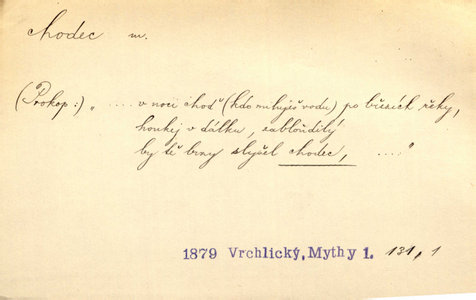 chodec m.
(Prokop:) „ .... v noci choď (kdo miluješ vodu) po březích řeky,
houkej v dálku, zabloudilý
by tě brzy slyšel chodec, ...."
1879 Vrchlický, Mythy 1. 131, 1